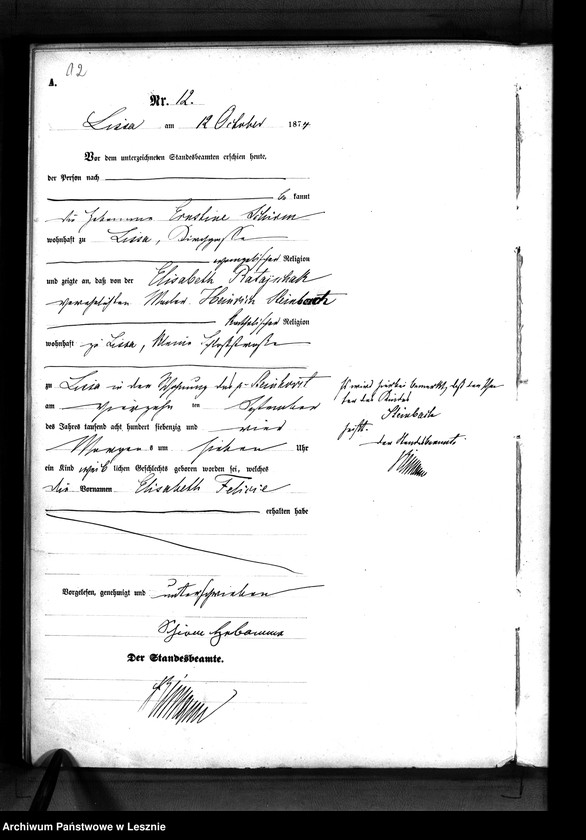 12
A.
Nr. 12.
Lissa am 12 October 1874
Vor dem unterzeichneten Standesbeamten erschien heute,
der Person nach
be kannt
die Hebamme Ernestine Schirm
wohnhaft zu Lissa,
evangelischer Religion
und zeigte an, daß von der Elisabeth Ratajschak
verehelichten Maler Heinrich
katholischer Religion
wohnhaft zu Lissa, kleine
zu Lissa in der Wohnung des
am vierzehn ten September
des Jahres tausend acht hundert siebenzig und vier
Morgens um sieben Uhr
ein Kind weib lichen Geschlechts geboren worden sei, welches
die Vornamen Elisabeth Felicie
erhalten habe
Vorgelesen, genehmigt und unterschrieben
Schirm Hebamme
Der Standesbeamte.
Es wird hierbei bemerkt, daß der
ter des Kindes
Steinbach
heißt.
der Standesbeamte.
Archiwum Państwowe w Lesznie